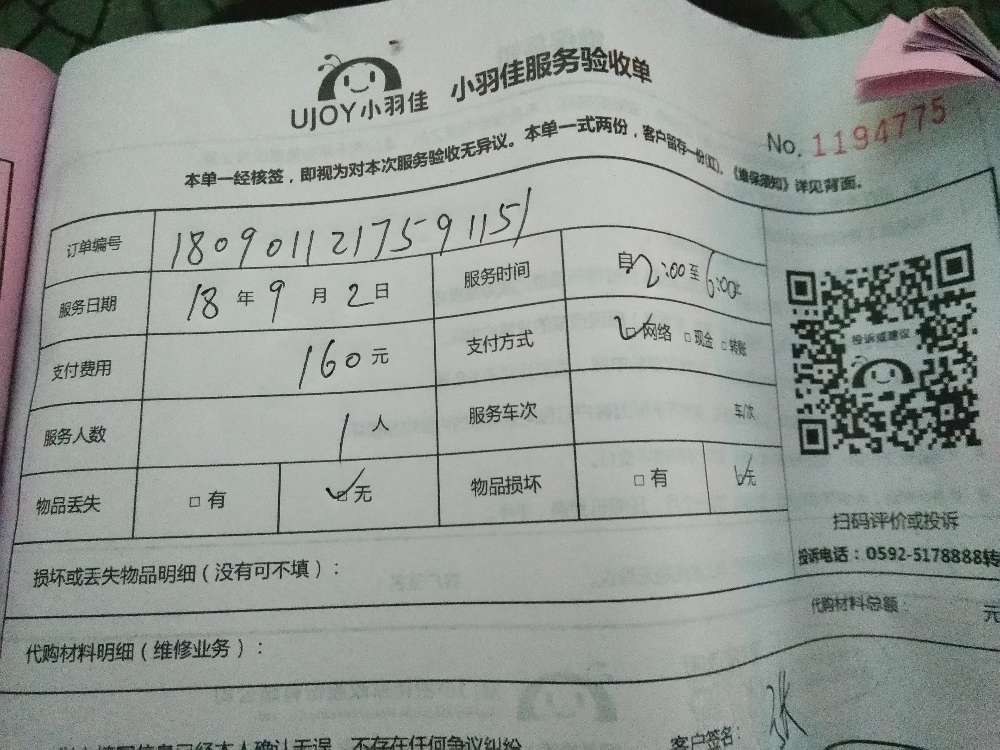 UJOY小羽佳 小羽佳服务验收单
No. 1194775
本单一经核签，即视为对本次服务验收无异议。本单一式两份，客户留存一份(红)。《维保须知》详见背面。
订单编号 1809011217591151
服务日期 18年9月2日 服务时间 自2:00至6:00止
支付费用 160元 支付方式 ☑网络 □现金 □转账
投诉或建议
服务人数 1人 服务车次 车/次
物品丢失 □有 ☑无 物品损坏 □有 ☑无
扫码评价或投诉
投诉电话：0592-5178888转
损坏或丢失物品明细（没有可不填）：
代购材料总额： 元
代购材料明细（维修业务）：
信息已经本人确认无误，不存在任何争议纠纷
客户签名：张